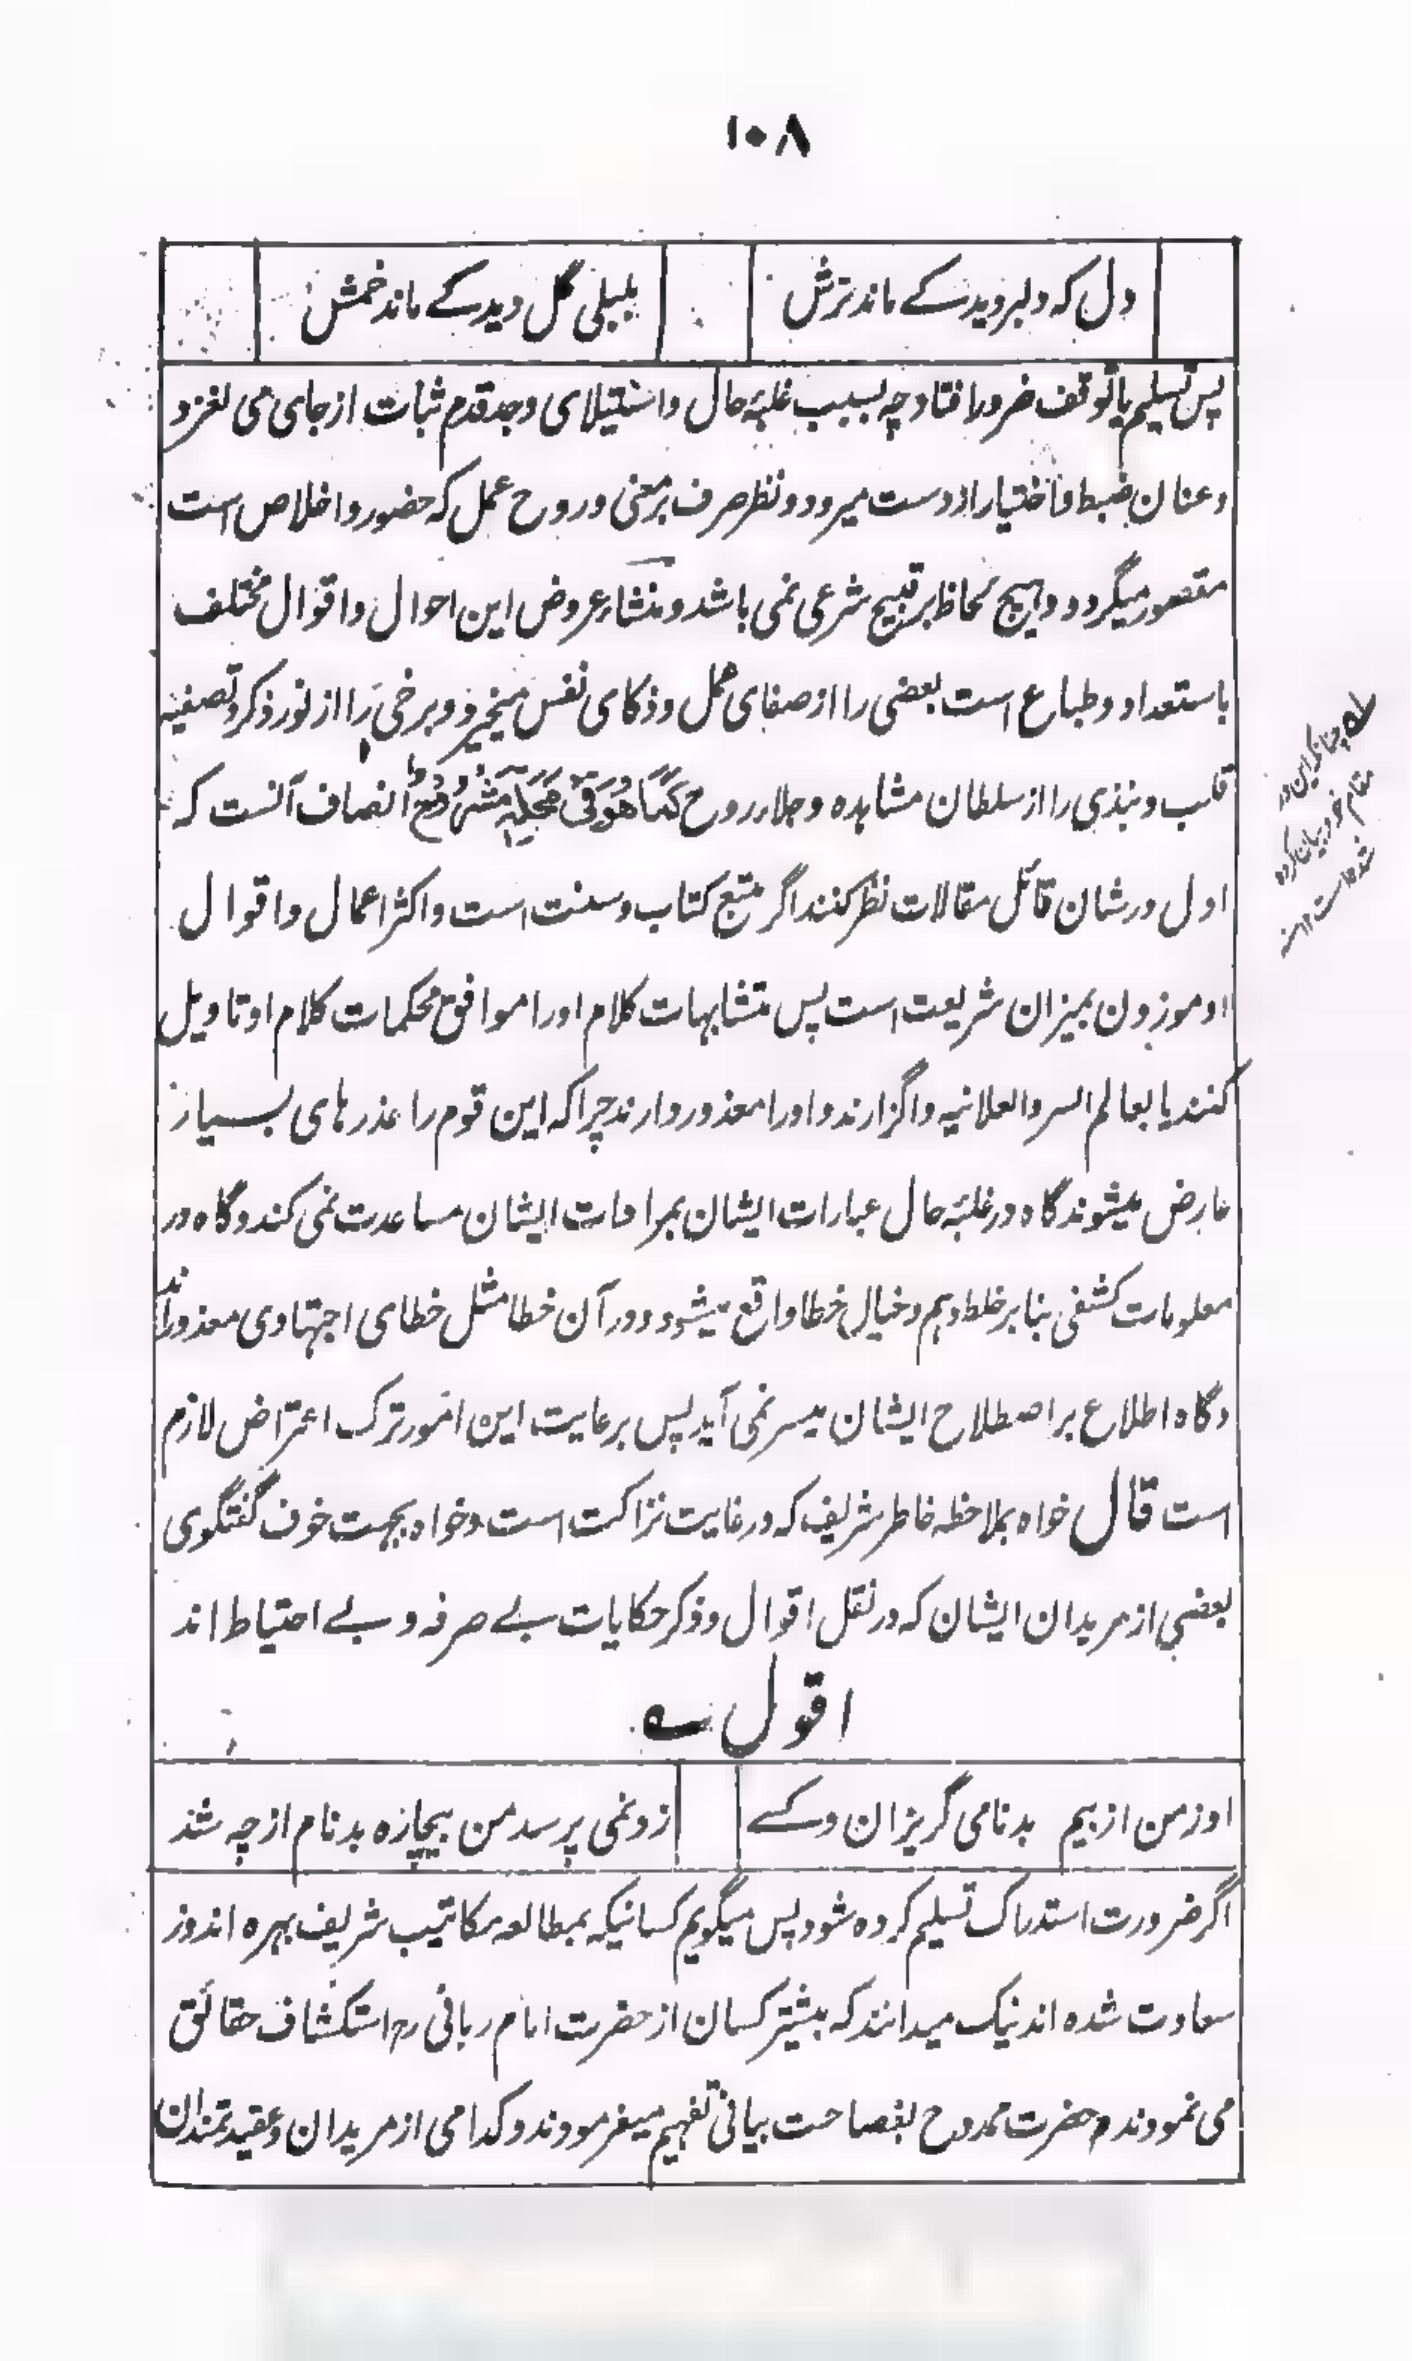 ۱۰۸
دل که دلبر دید کے ماند ترش
بلبلی گل دید کے ماند خمش
پس تسلیم یا توقف ضرور افتاد چه بسبب غلبۂ حال و استیلای وجد قدم ثبات از جای می لغزد
و عنان ضبط و اختیار از دست میرود و نظر صرف بر معنی و روح عمل که حضور و اخلاص است
مقصور میگردد و هیچ لحاظ بر قبیح شرعی نمی باشد و منشاء عروض این احوال و اقوال مختلف
باستعداد و طباع است بعضی را از صفای محل و ذکای نفس میخیزد و برخی را از نور ذکر و تصفیه
قلب و نبذی را از سلطان مشاهده و جلاء روح کَمَا هُوَ فِی مَحَلِّہٖ مَشْرُوْحٌ انصاف آنست که
اول در شان قائل مقالات نظر کنند اگر متبع کتاب و سنت است و اکثر اعمال و اقوال
او موزون بمیزان شریعت است پس متشابهات کلام او را موافق محکمات کلام او تاویل
کنند یا بعالم السر والعلانیه واگزارند و او را معذور دارند چراکه این قوم را عذرهای بسیار
عارض میشوند گاه در غلبۂ حال عبارات ایشان بمرادات ایشان مساعدت نمی کند و گاه در
معلومات کشفی بنا بر خلط وهم و خیال خطا واقع میشود و در آن خطا مثل خطای اجتهادی معذور اند
و گاه اطلاع بر اصطلاح ایشان میسر نمی آید پس برعایت این امور ترک اعتراض لازم
است قال خواه بملاحظه خاطر شریف که در غایت نزاکت است و خواه بجهت خوف گفتگوی
بعضی از مریدان ایشان که در نقل اقوال و ذکر حکایات بے صرفه و بے احتیاط اند
اقول ؎
او ز من از بیم بدنامی گریزان و کسے
زو نمی پرسد من بیچاره بدنام از چه شد
اگر ضرورت استدراک تسلیم کرده شود پس میگویم کسانیکه بمطالعه مکاتیب شریف بهره اندوز
سعادت شده اند نیک میدانند که بیشتر کسان از حضرت امام ربانی رح استکشاف حقائق
می نمودند و حضرت ممدوح بفصاحت بیانی تفهیم میفرمودند و کدامی از مریدان و عقیدتمندان
چنانکه این در
مقام خود بیان کرده
شده است ۱۲ منه